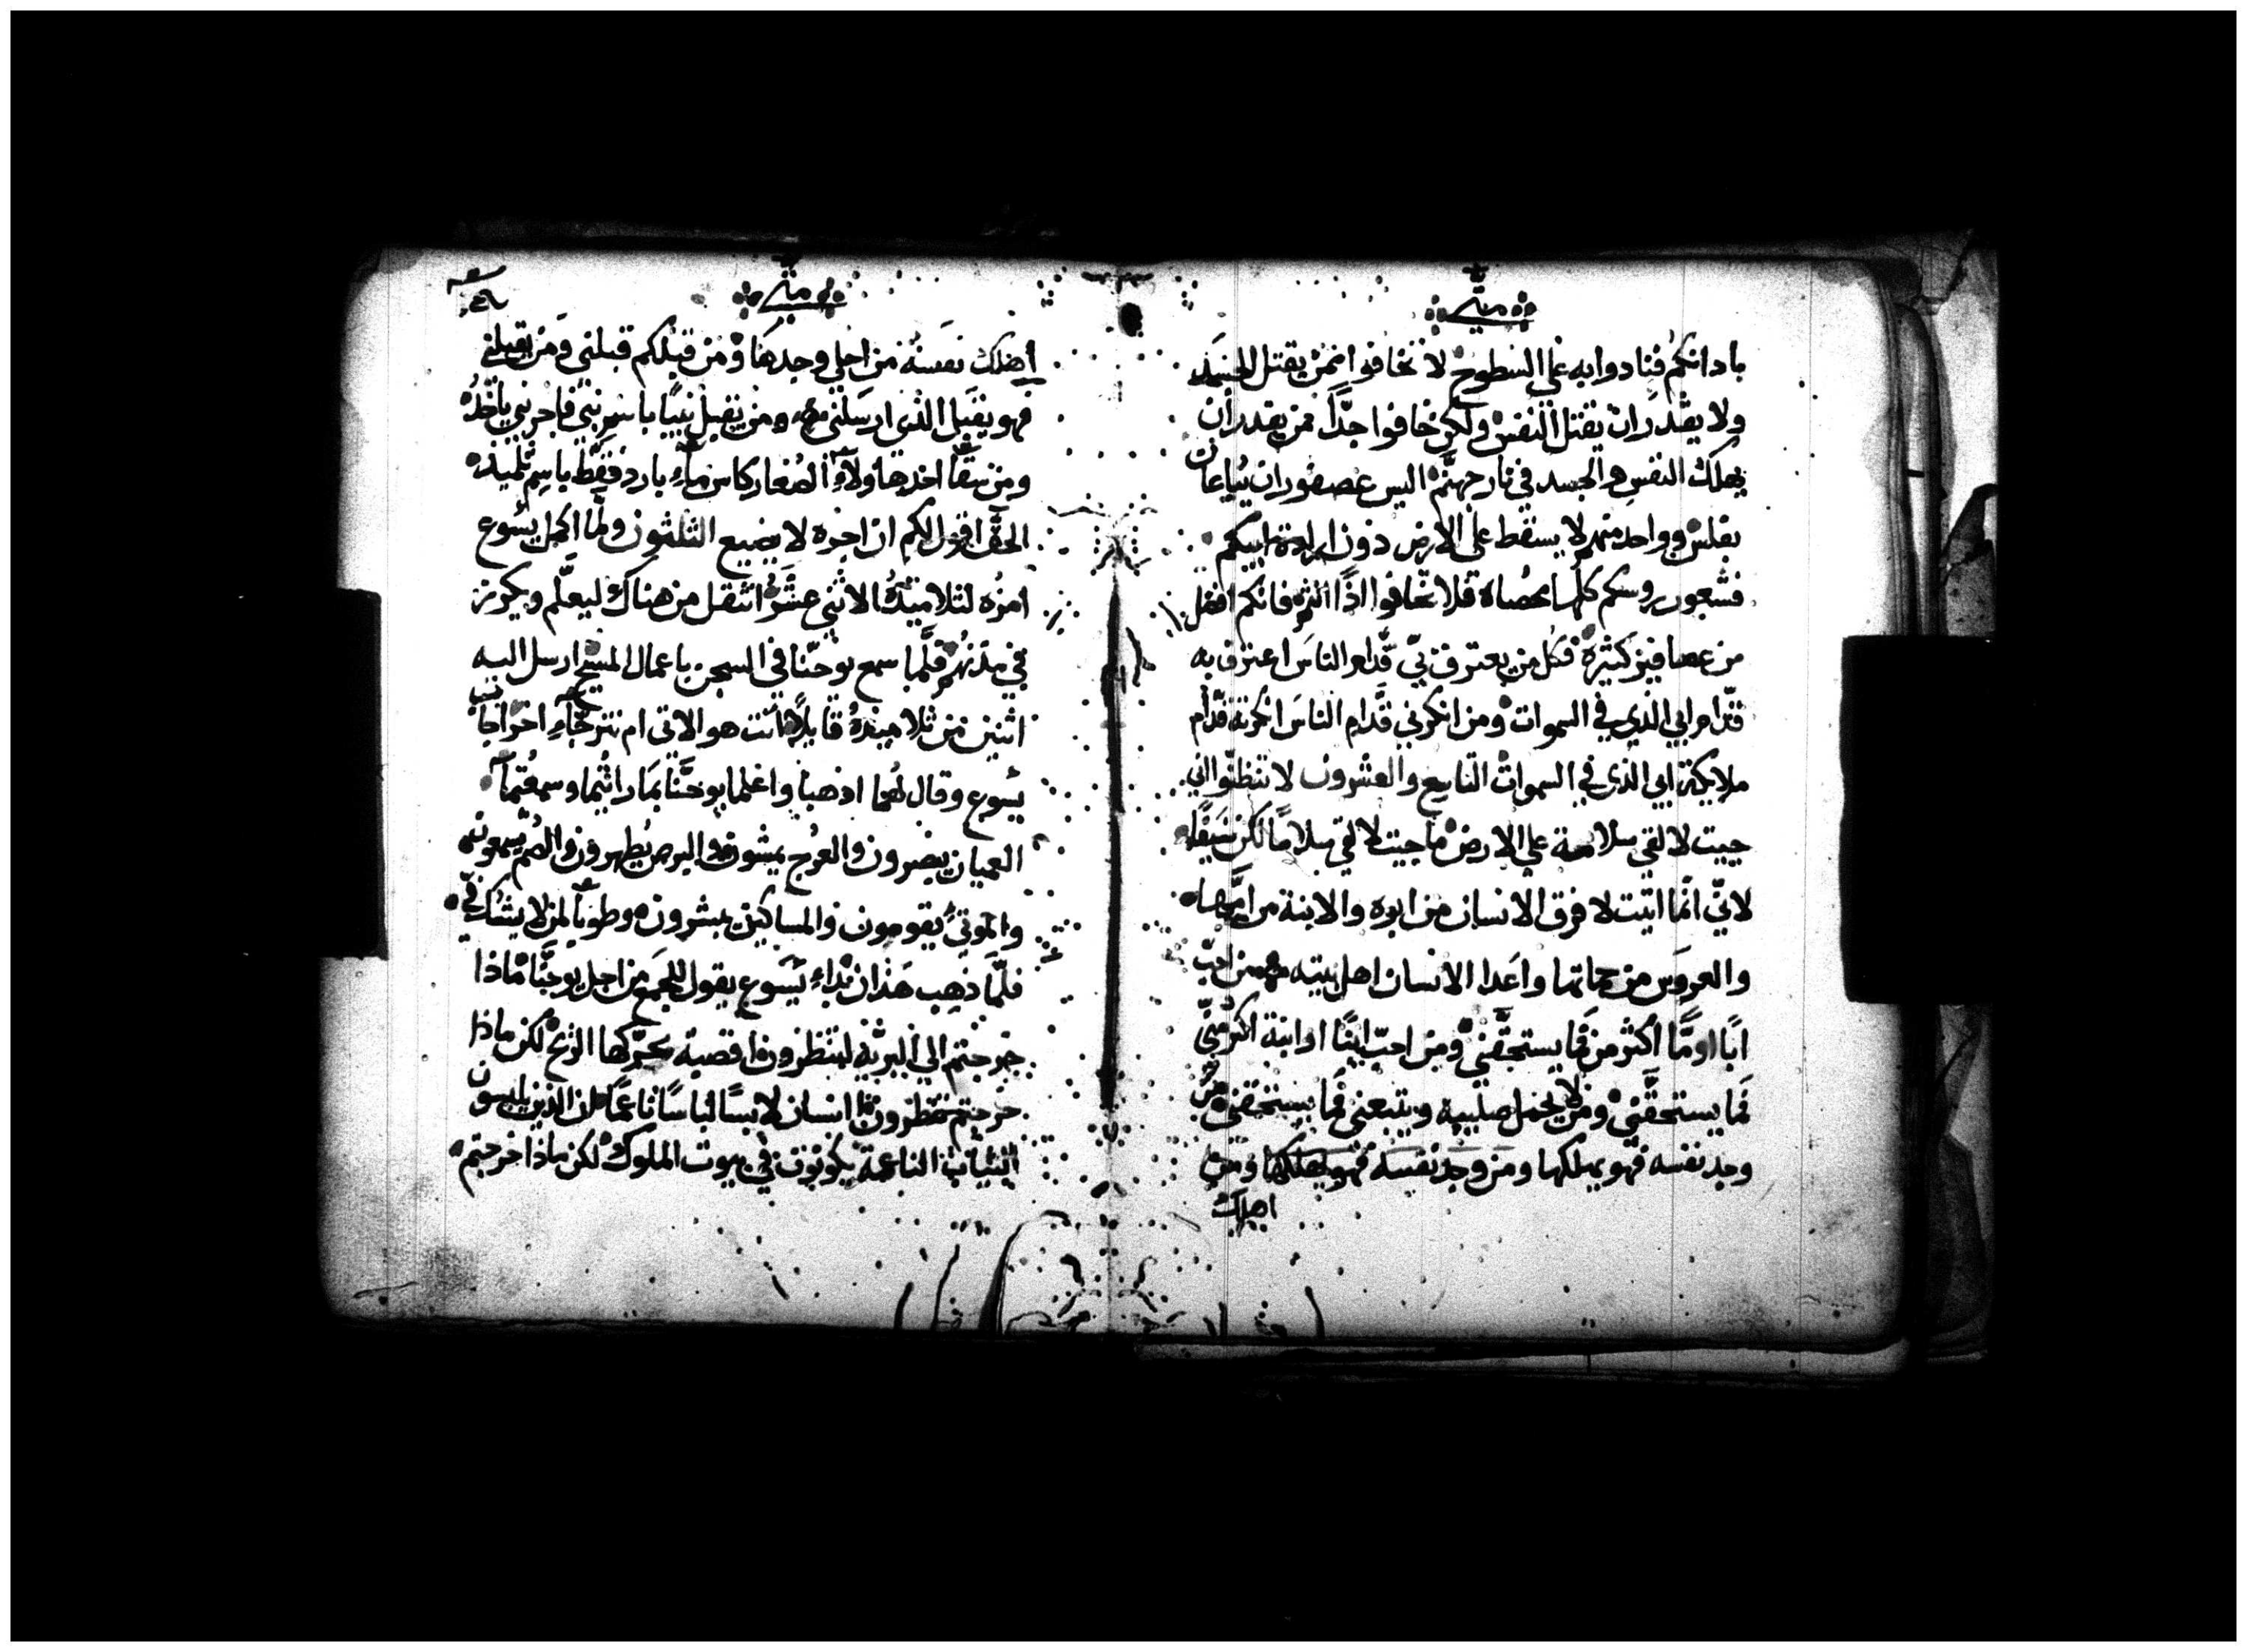 متى
بادانكم فنادوا به على السطوح لا تخافوا ممن يقتل الجسد
ولا يقدر ان يقتل النفس ولكن خافوا جدّاً ممن يقدر ان
يهلك النفس والجسد في نار جهنم اليس عصفوران يُباعان
بفلس وواحد منهم لا يسقط على الارض دون ارادة ابيكم
فشعور روسكم كلها محصاه فلا تخافوا اذًا فانكم افضل
من عصافير كثيرة فكل من يعترف بي قدّام الناس اعترف به
قدّام ابي الذي في السموات ومن انكرني قدّام الناس انكرته قدّام
ملايكة ابي الذي في السموات التاسع والعشرون لا تظنوا اني
جيت لالقي سلامة على الارض ما جيت لالقي سلامًا لكن سيفًا
لانّي انّما اتيت لافرق الانسان من ابوه والابنة من امّها
والعروس من حماتها واعدا الانسان اهل بيته من احبّ
ابًا اومًّا اكثر من فما يستحقّني ومن احبّ ابنًا او ابنة اكثر منّي
فما يستحقّني ومن لا يحمل صليبه ويتبعني فما يستحقني من
وجد نفسه فهو يهلكها ومن وجد نفسه فهو يهلكها ومن
اهلك
متى
اهلك نفسه من اجلي وجدها ومن قبلكم قبلني ومن يقبلني
فهو يقبل الذي ارسلني ومن يقبل نبيًا باسم نبي فاجر نبي ياخذه
ومن سقا احد هاولاء الصغار كاس ماء بارد فقط باسم تلميذ
الحق اقول لكم ان اجره لا يضيع الثلثون ولما اكمل يسوع
امره لتلاميذه الاثني عشر انتقل من هناك ليعلّم ويكرز
في مدنهم فلّما سمع يوحنّا في السجن باعمال المسيح ارسل اليه
اثنين من تلاميذه قايلًا انت هو الاتي ام نترجّاء اخر اجاب
يسوع وقال لهما اذهبا واعلما يوحنّا بما راتيما وسمعتما
العميان يبصرون والعرج يمشون والبرص يُطهرون والصّم يسمعون
والموتى يقومون والمساكين يبشرون وطوبا لمن لا يشك في
فلّما ذهب هذان بداء يسوع يقول للجمع من اجل يوحنّا ماذا
خرجتم الى البريّة لتنظرون اقصبة يحرّكها الريح لكن ماذا
خرجتم تنظرون انسان لابسًا لباسًا ناعمًا ان الذين يلبسون
الثياب الناعمة يكونون في بيوت الملوك لكن ماذا خرجتم